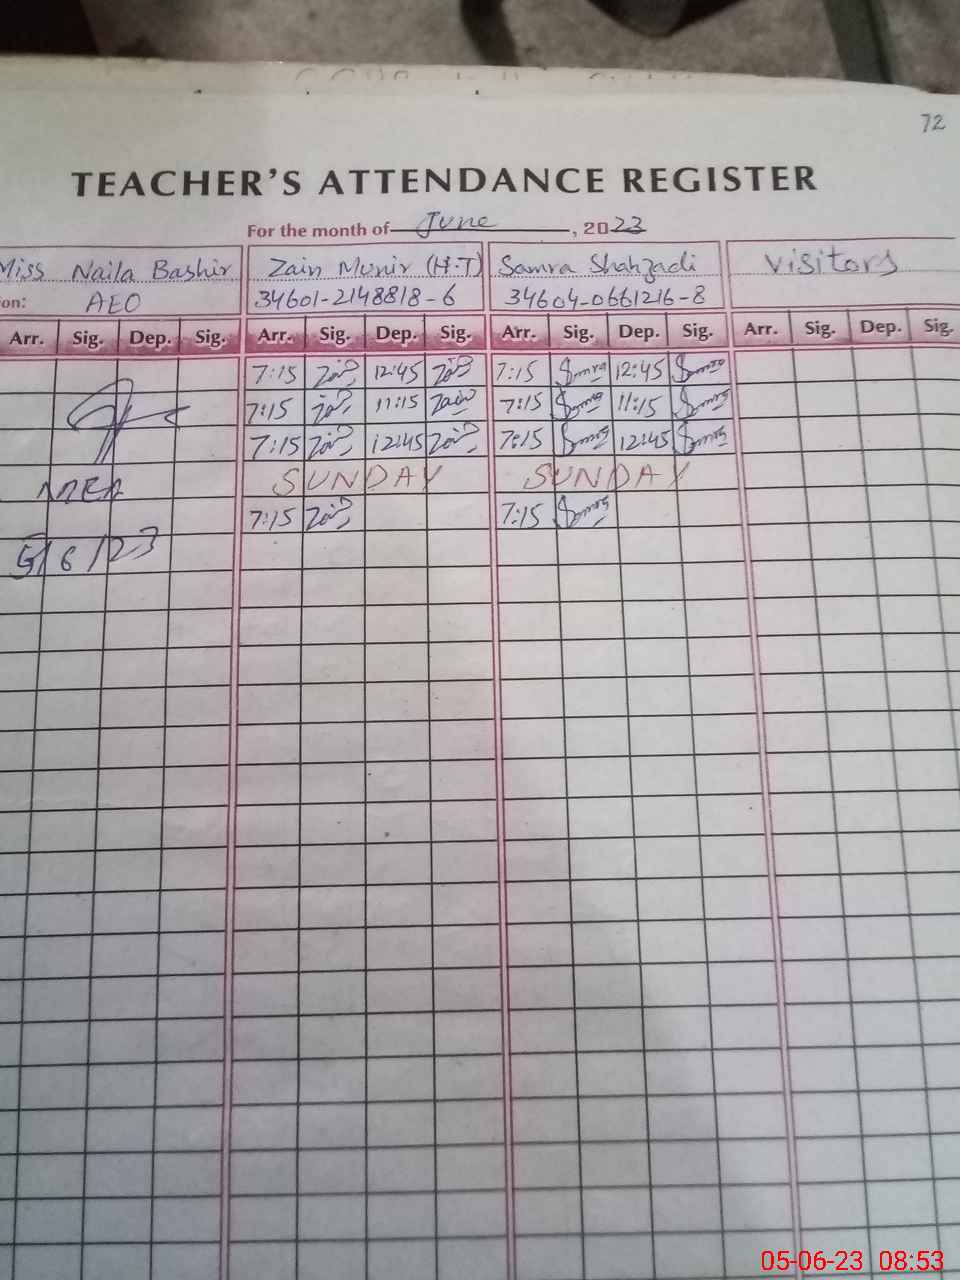 72
TEACHER'S ATTENDANCE REGISTER
For the month of June, 2023
Miss Naila Bashir Zain Munir (H.T) Samra Shahzadi Visitors
ion: AEO 34601-2148818-6 34604-0661216-8
Arr. Sig. Dep. Sig. Arr. Sig. Dep. Sig. Arr. Sig. Dep. Sig. Arr. Sig. Dep. Sig.
7:15 Zain 12:45 Zain 7:15 Samra 12:45 Samra
7:15 Zain 11:15 Zain 7:15 Samra 11:15 Samra
7:15 Zain 12:45 Zain 7:15 Samra 12:45 Samra
SUNDAY SUNDAY
7:15 Zain 7:15 Samra
5/6/23
05-06-23 08:53